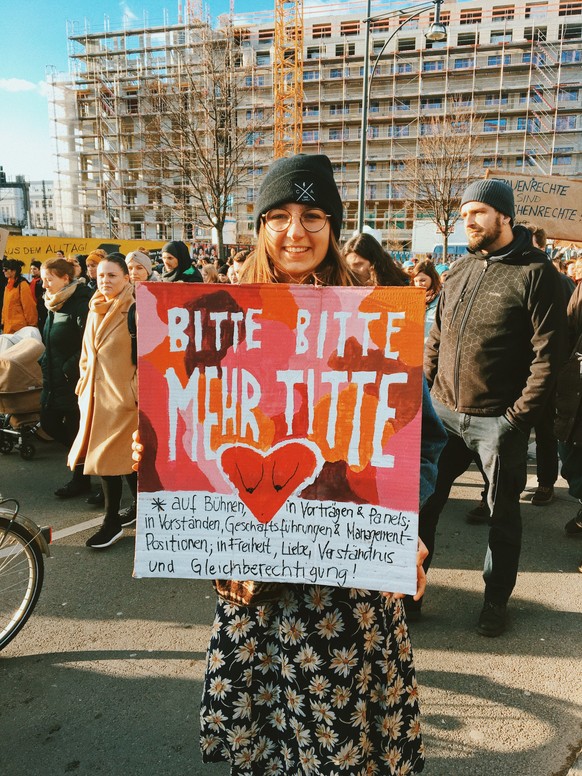 S DEM ALLTAG!
FRAUENRECHTE
SIND
CHENRECHTE
BITTE BITTE
MEHR TITTE
* auf Bühnen, in Vorträgen & Panels;
in Vorständen, Geschäftsführungen & Management-
Positionen; in Freiheit, Liebe, Verständnis
und Gleichberechtigung!